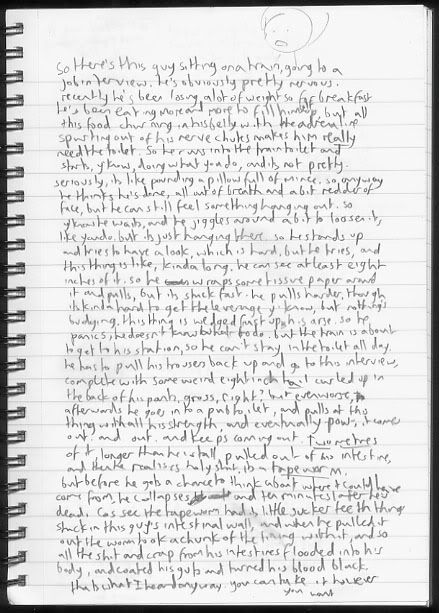 so there's this guy sitting on a train, going to a
job interview. he's obviously pretty nervous.
recently he's been losing a lot of weight so for breakfast
he's been eating more and more to fill himself, but all
this food churning in his belly with the adrenaline
spurting out of his nerve chutes makes him really
need the toilet. so he runs into the train toilet and
starts, y'know, doing what you do, and its not pretty.
seriously, its like pounding a pillow full of mince. so, anyway
he thinks he's done, all out of breath and a bit redder of
face, but he can still feel something hanging out. so
y'know he waits, and he jiggles around a bit to loosen it,
like you do. but its just hanging there. so he stands up
and tries to have a look, which is hard, but he tries, and
this thing is like, kinda long. he can see at least eight
inches of it. so he wraps some tissue paper around
it and pulls, but its stuck fast. he pulls harder, though
its kinda hard to get the leverage y'know, but nothing's
budging. this thing is wedged fast up his arse. so he
panics, he doesn't know what to do. but the train is about
to get to his station, so he can't stay in the toilet all day.
he has to pull his trousers back up and go to this interview,
complete with some weird eight inch tail curled up in
the back of his pants, gross, right? but even worse,
afterwards he goes into a pub toilet, and pulls at this
thing with all his strength, and eventually pows, it comes
out. and out. and keeps coming out. two metres
of it, longer than he is tall, pulled out of his intestine,
and then he realises holy shit, its a tapeworm.
but before he gets a chance to think about where it could have
come from, he collapses and ten minutes after he's
dead. cos see the tapeworm had its little sucker teeth things
stuck in this guy's intestinal wall, and when he pulled it
out the worm took a chunk of the lining with it, and so
all the shit and crap from his intestines flooded into his
body, and coated his guts and turned his blood black.
thats what I heard anyway. you can take it however
you want